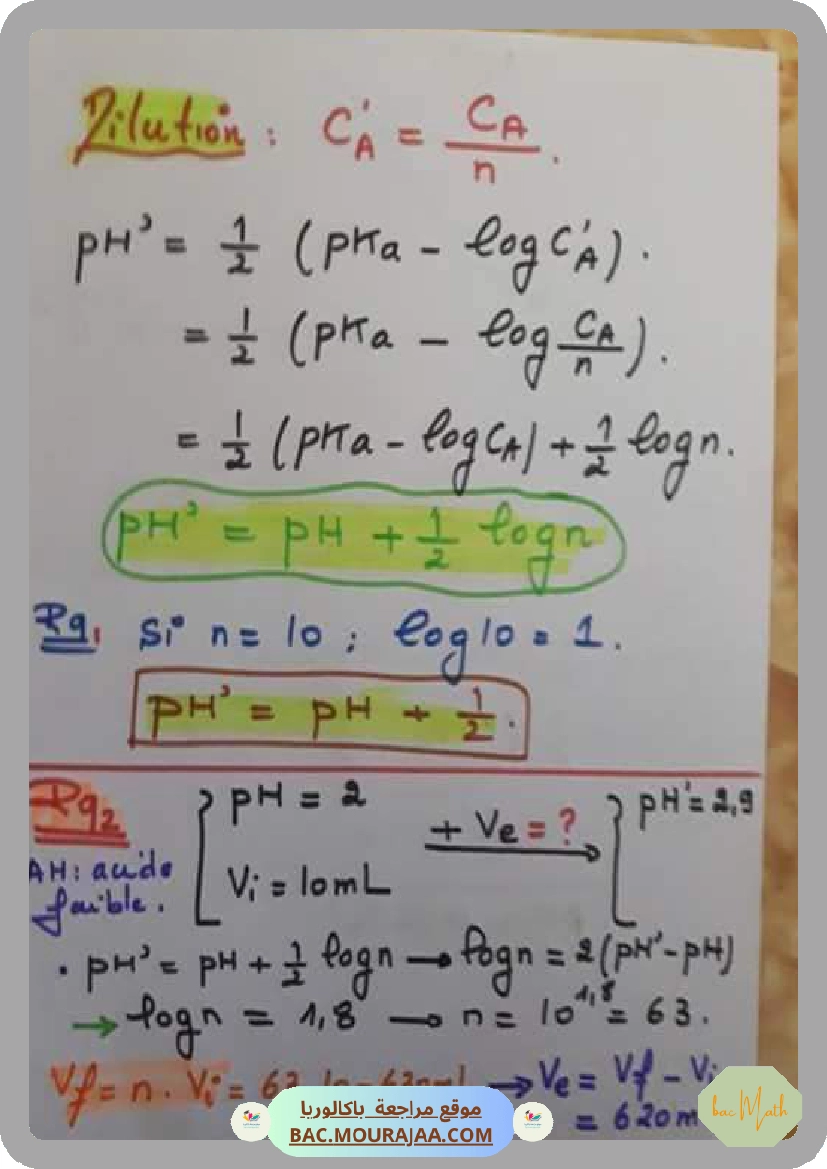 Dilution : C'A = CA/n.
pH' = 1/2 (pKa - log C'A).
= 1/2 (pKa - log CA/n).
= 1/2 (pKa - log CA) + 1/2 log n.
pH' = pH + 1/2 log n
Rq1 Si n = 10 ; log 10 = 1.
pH' = pH + 1/2.
Rq2 pH = 2 + Ve = ? pH' = 2,9
AH : acide faible. Vi = 10 mL
• pH' = pH + 1/2 log n → log n = 2 (pH' - pH)
→ log n = 1,8 → n = 10^1,8 = 63.
Vf = n . Vi = → Ve = Vf - Vi
= 620 m
موقع مراجعة باكالوريا
BAC.MOURAJAA.COM
bac Math